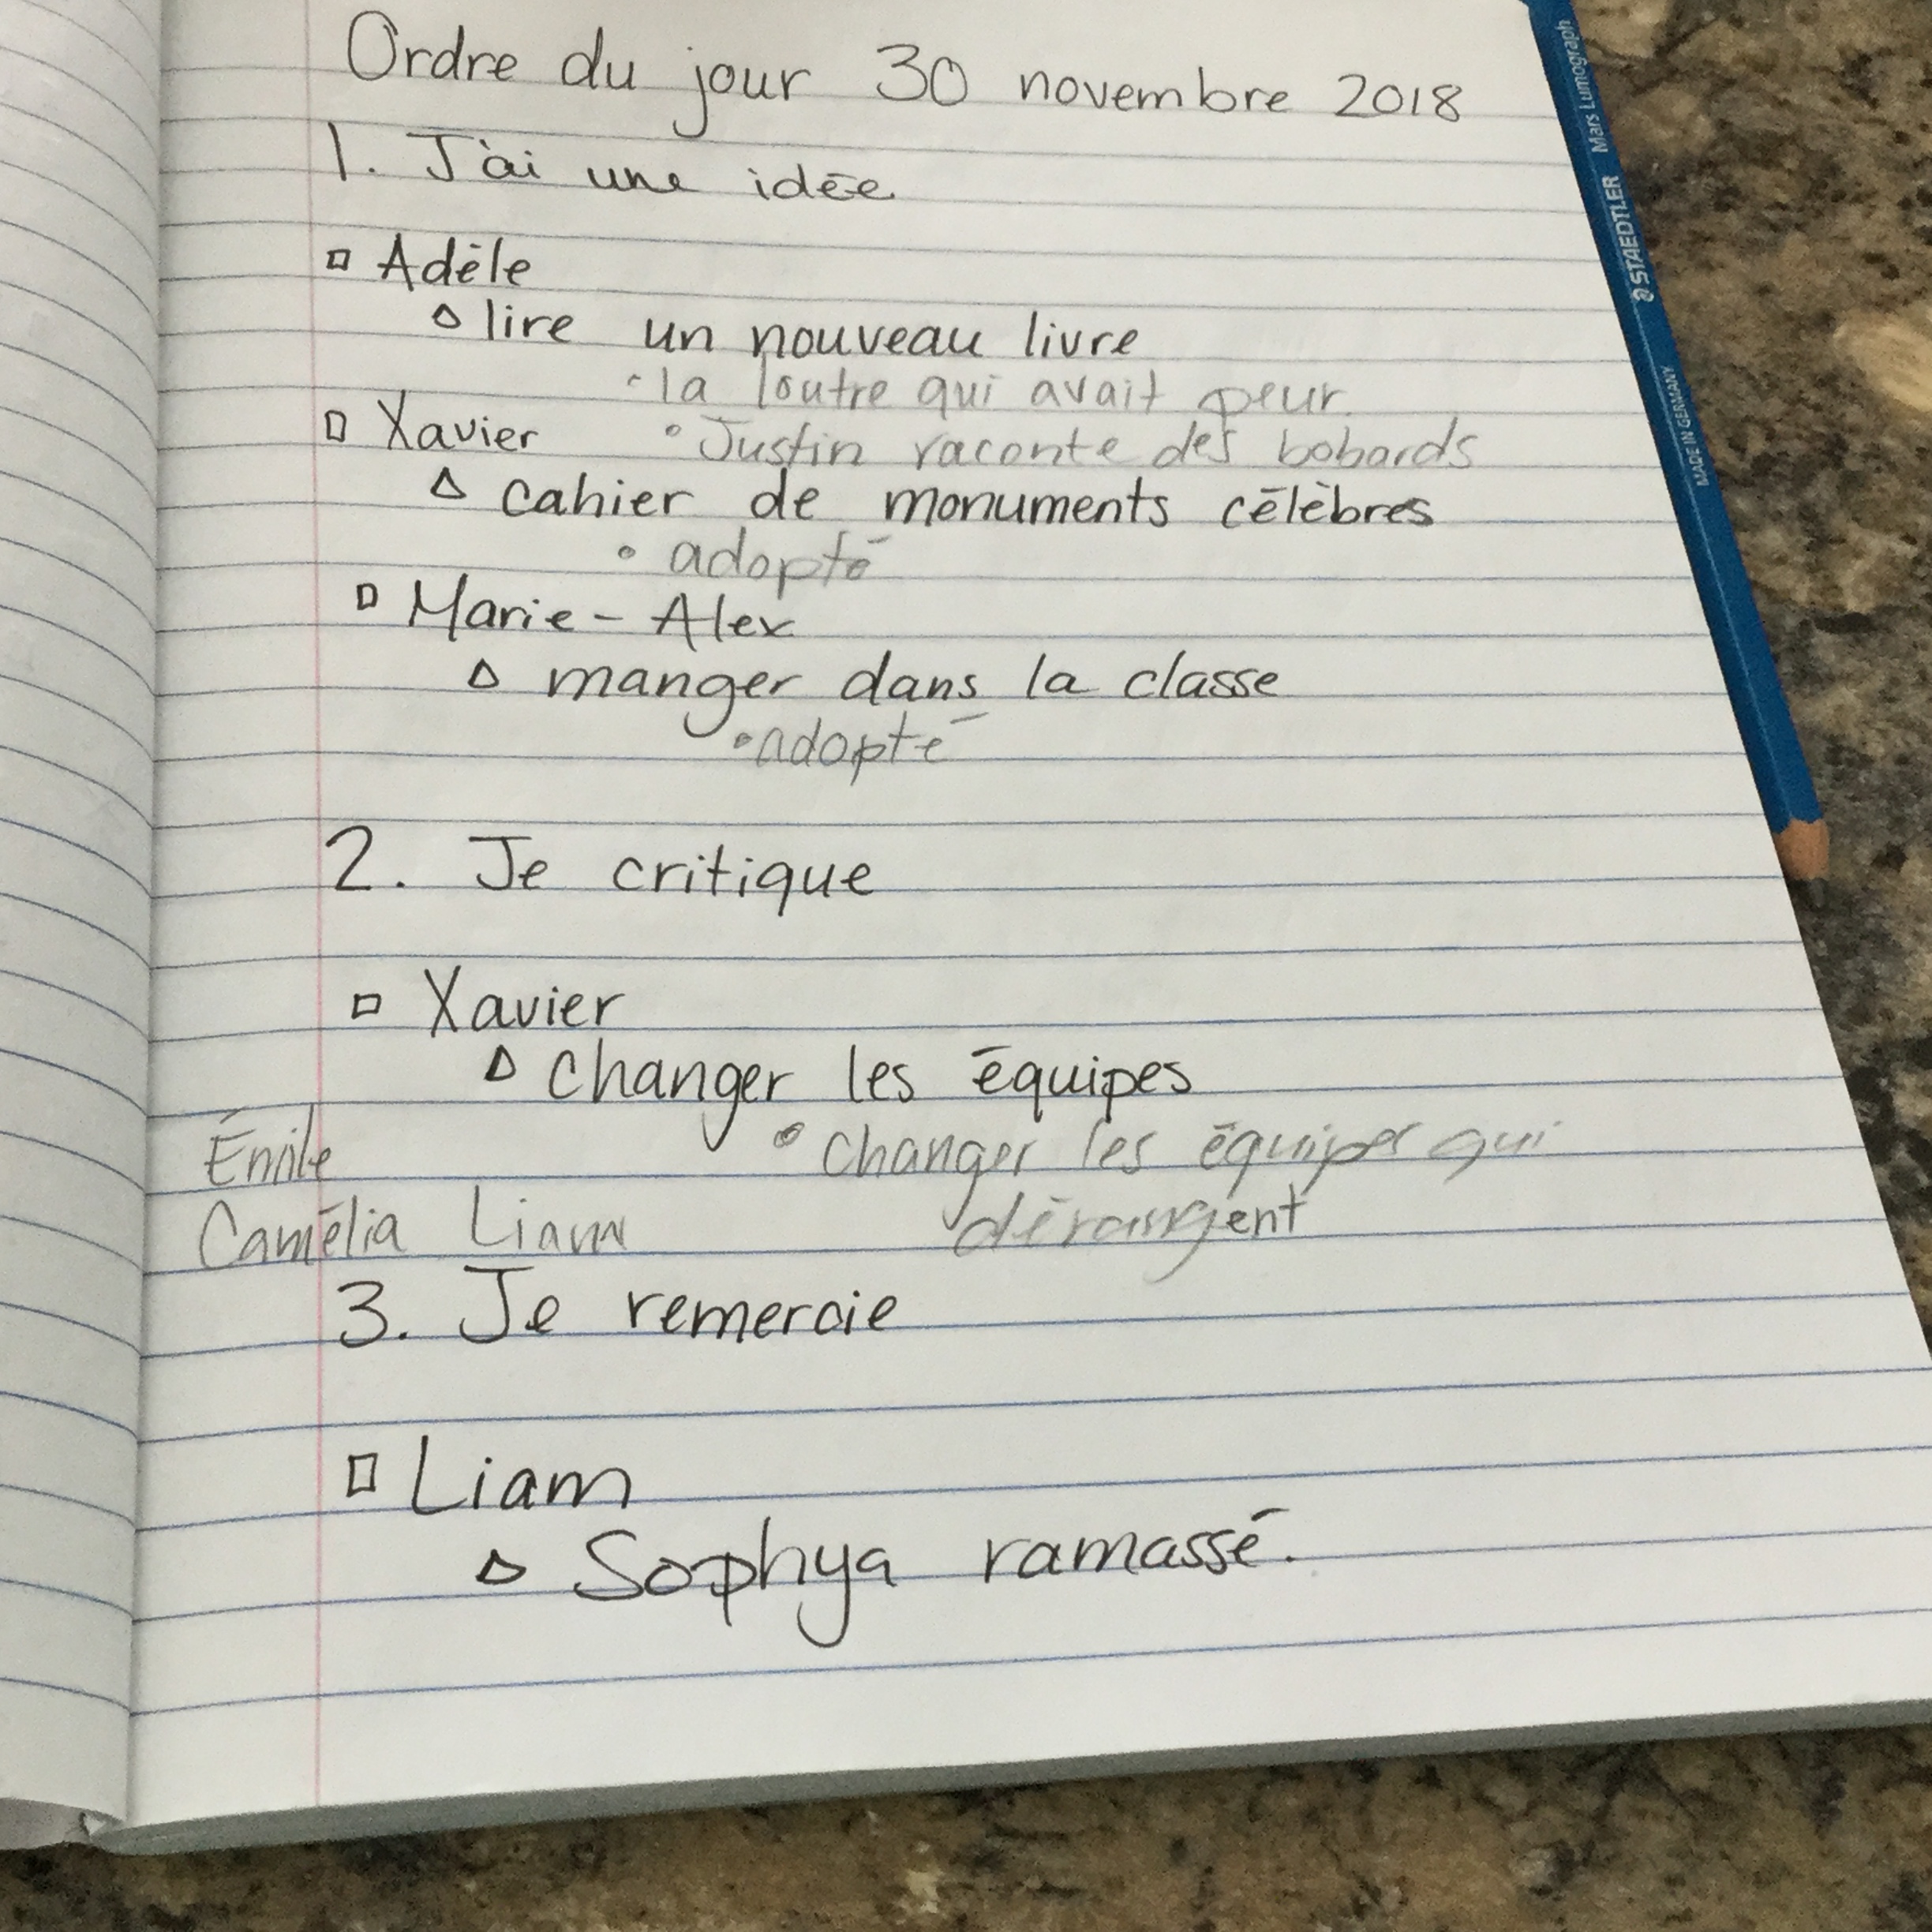 Ordre du jour 30 novembre 2018
1. J'ai une idée
Adèle
lire un nouveau livre
la loutre qui avait peur.
Xavier
Justin raconte des bobards
cahier de monuments célèbres
adopté
Marie-Alex
manger dans la classe
adopté
2. Je critique
Xavier
changer les équipes
Émile
changer les équipes qui
Camélia Liam
dérangent
3. Je remercie
Liam
Sophya ramassé.
STAEDTLER Mars Lumograph
MADE IN GERMANY